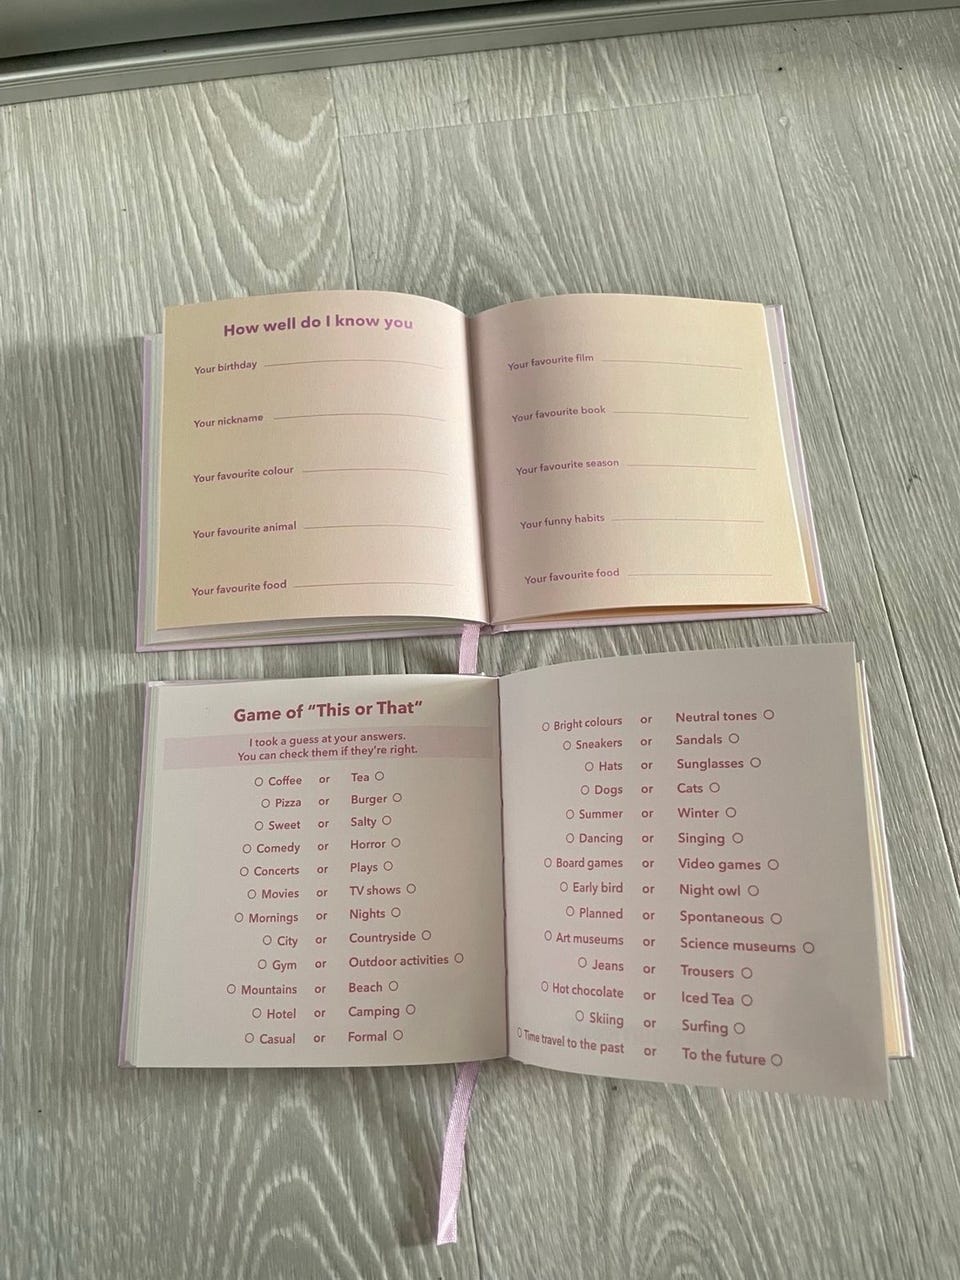 How well do I know you
Your birthday
Your nickname
Your favourite colour
Your favourite animal
Your favourite food
Your favourite film
Your favourite book
Your favourite season
Your funny habits
Your favourite food
Game of “This or That“
I took a guess at your answers.
You can check them if they're right.
Coffee or Tea
Pizza or Burger
Sweet or Salty
Comedy or Horror
Concerts or Plays
Movies or TV shows
Mornings or Nights
City or Countryside
Gym or Outdoor activities
Mountains or Beach
Hotel or Camping
Casual or Formal
Bright colours or Neutral tones
Sneakers or Sandals
Hats or Sunglasses
Dogs or Cats
Summer or Winter
Dancing or Singing
Board games or Video games
Early bird or Night owl
Planned or Spontaneous
Art museums or Science museums
Jeans or Trousers
Hot chocolate or Iced Tea
Skiing or Surfing
Time travel to the past or To the future